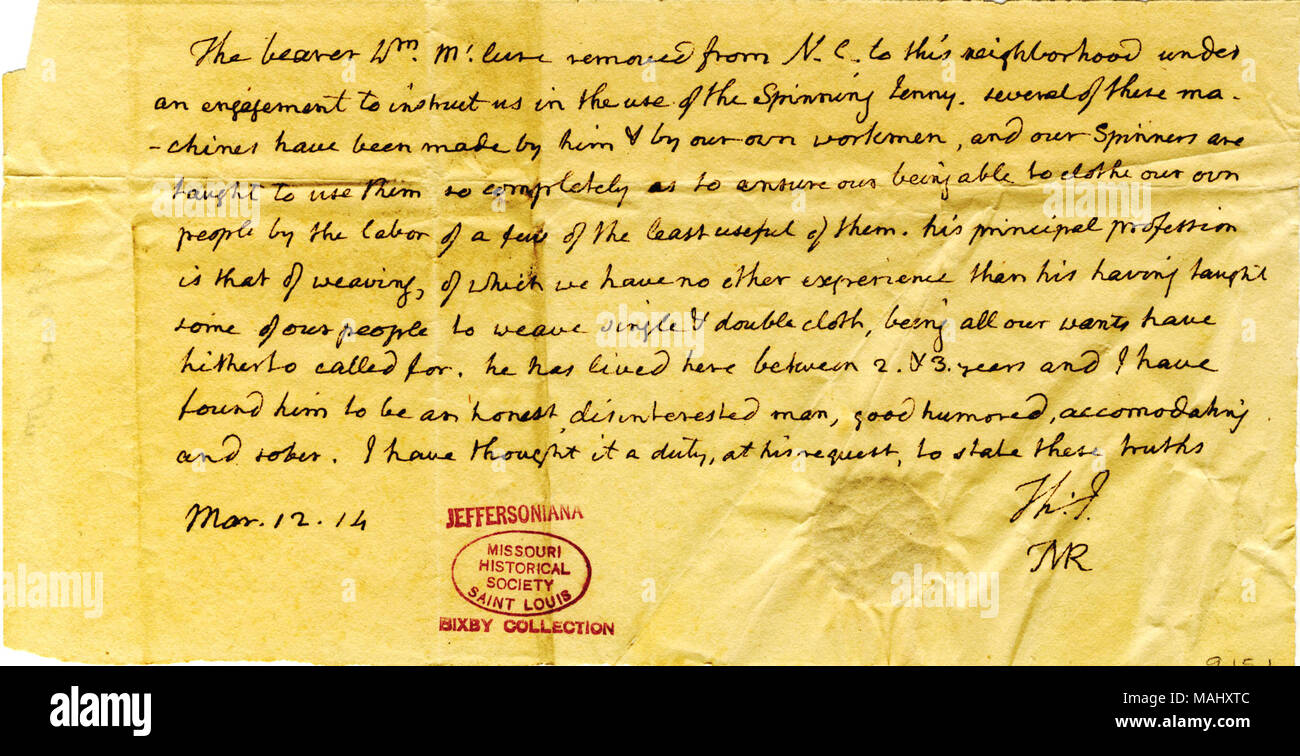 The bearer Wm. Mc.lure removed from N.C. to this neighborhood under
an engagement to instruct us in the use of the Spinning Jenny. several of these ma-
-chines have been made by him & by our own workmen, and our Spinners are
taught to use them so completely as to ensure our being able to clothe our own
people by the labor of a few of the least useful of them. his principal profession
is that of weaving, of which we have no other experience than his having taught
some of our people to weave single & double cloth, being all our wants have
hitherto called for. he has lived here between 2. & 3. years and I have
found him to be an honest, disinterested man, good humored, accomodating
and sober. I have thought it a duty, at his request, to state these truths
Th:J.
Mar. 12. 14
TMR
JEFFERSONIANA
MISSOURI
HISTORICAL
SOCIETY
SAINT LOUIS
BIXBY COLLECTION
alamy
Image ID: MAHXTC
www.alamy.com